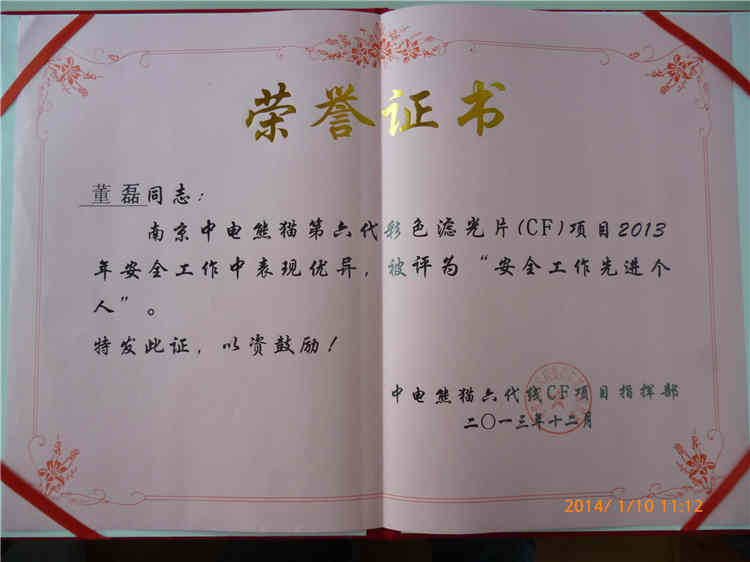 荣誉证书
董磊同志：
南京中电熊猫第六代彩色滤光片(CF)项目2013
年安全工作中表现优异，被评为“安全工作先进个
人”。
特发此证，以资鼓励！
中电熊猫六代线CF项目指挥部
二〇一三年十二月
2014/ 1/10 11:12